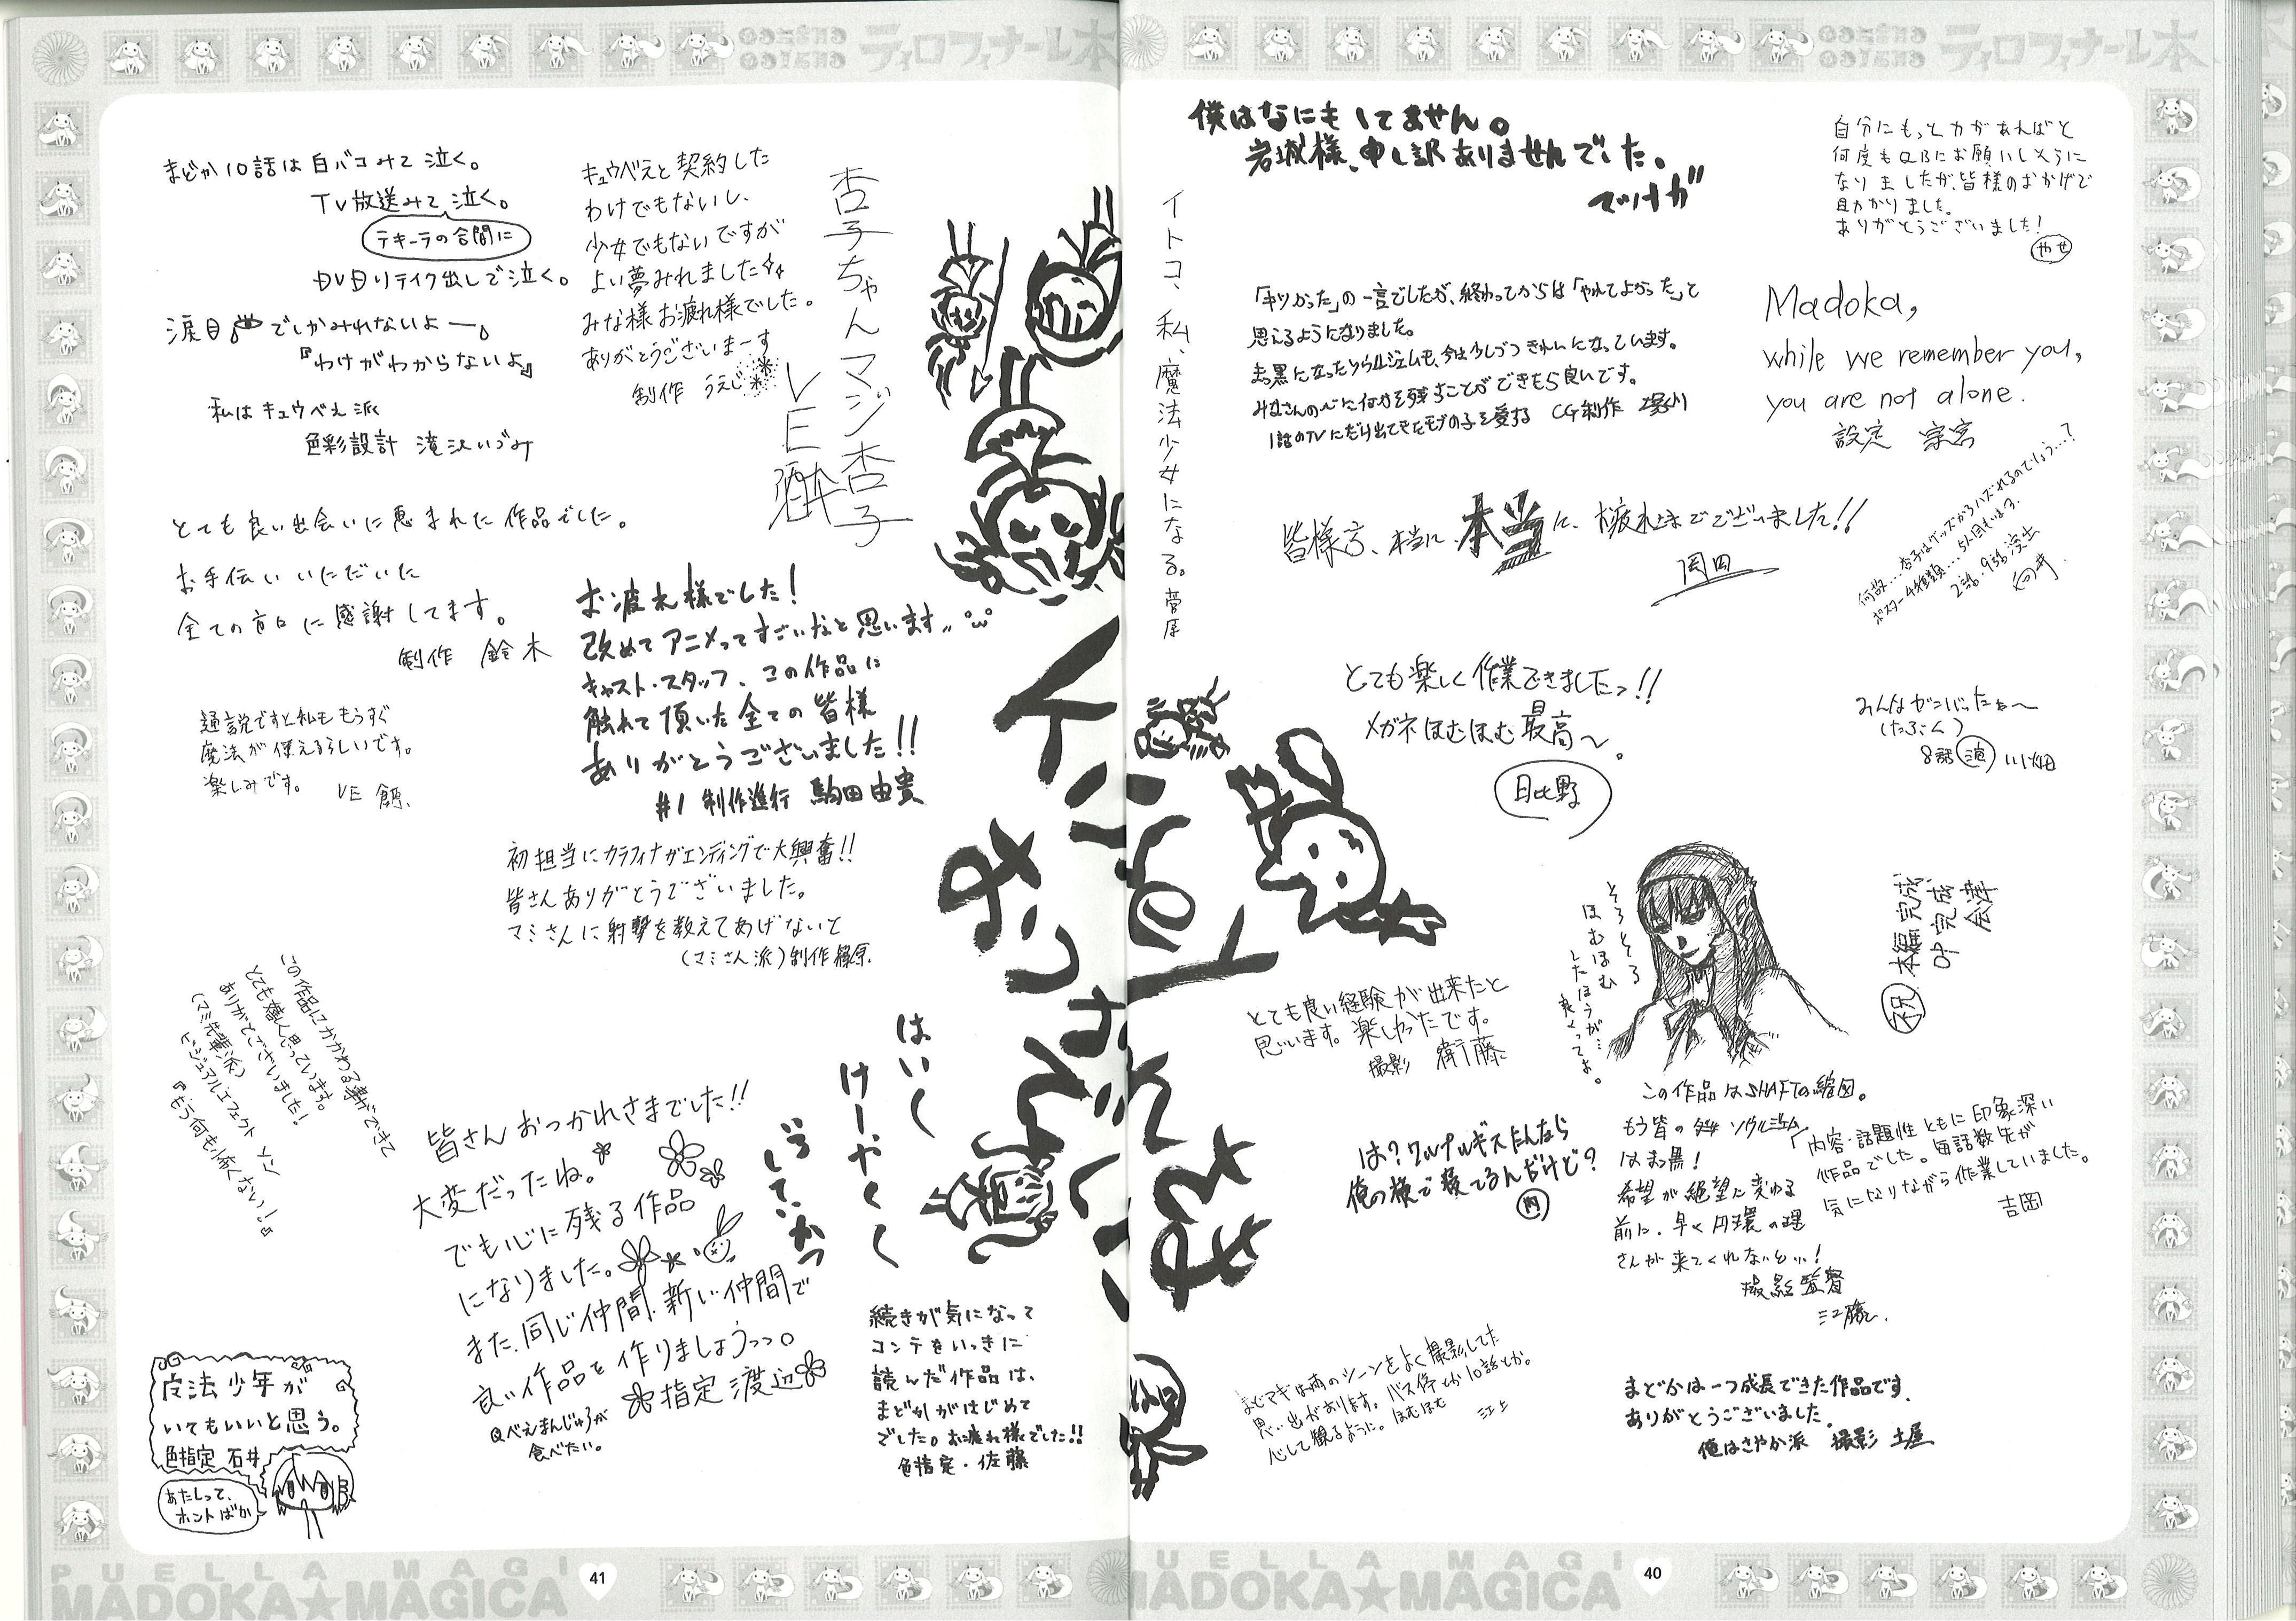 ティロフィナーレ本
僕はなにもしてません。
岩城様、申し訳ありませんでした。
自分にもっと力があればと
何度もQBにお願いしそうに
なりましたが、皆様のおかげで
助かりました。
ありがとうございました!
やせ
イトコ、私、魔法少女になる。菅原
の一言でしたが、終わってからは「やれてよかった」と
思えるようになりました。
真っ黒になったソウルジェムも、今は少しづつきれいになっています。
みなさんの心に何かを残すことができたら良いです。
1話のTVにだけ出てきたモブの子を愛する CG制作
Madoka,
while we remember you,
you are not alone.
設定 宗宮
皆様方、本当に、本当に、お疲れさまでございました!!
岡田
何故…杏子はグッズからハズれるのでしょう…?
ポスター4種類…5人目もいます。
2話・9話 演出
向井
とても楽しく作業できましたっ!!
メガネほむほむ最高~。
日比野
みんながんばったね~
(たぶん)
8話 演 川畑
そろそろ
ほむほむ
したほうが…
良くってよ。
祝 本編完成
OP完成
会津
とても良い経験が出来たと
思います。楽しかったです。
撮影 衛藤
この作品はSHAFTの縮図。
もう皆のソウルジェム
はまっ黒!
希望が絶望に変わる
前に、早く円環の理
さんが来てくれないと…!
撮影監督
江藤
「内容・話題性ともに印象深い
作品でした。毎話数先が
気になりながら作業していました。
吉岡
は?ワルプルギスたんなら
俺の横で寝てるんだけど?
内
まどマギは雨のシーンをよく撮影してた
思い出があります。バス停とか10話とか。
心して観るように。ほむほむ 江上
まどかは一つ成長できた作品です。
ありがとうございました。
俺はさやか派 撮影 土屋
PUELLA MAGI
MADOKA★MAGICA
40
ティロフィナーレ本
まどか10話は白バコみて泣く。
TV放送みて泣く。
テキーラの合間に
DVDリテイク出しで泣く。
涙目でしかみれないよー。
『わけがわからないよ』
私はキュウべえ派
色彩設計 滝沢いづみ
キュウべえと契約した
わけでもないし、
少女でもないですが
よい夢みれました
みな様お疲れ様でした。
ありがとうございまーす
制作 うえじ
杏子ちゃんマジ杏子
VE 酒井
とても良い出会いに恵まれた作品でした。
お手伝いいただいた
全ての方々に感謝してます。
制作 鈴木
お疲れ様でした!
改めてアニメってすごいなと思います
キャスト・スタッフ、この作品に
触れて頂いた全ての皆様
ありがとうございました!!
#1 制作進行 駒田由貴
通説ですと私ももうすぐ
魔法が使えるらしいです。
楽しみです。 VE
初担当にカラフィナがエンディングで大興奮!!
皆さんありがとうございました。
マミさんに射撃を教えてあげないと
(マミさん派)制作 篠原
イヌカレー
おつかれさま
でした
はいく
けーやくく
どうして、かっ
この作品にかかわる事ができて
とても嬉しく思っています。
ありがとうございました!
(マミ先輩派)
ビジュアルエフェクト ソン
『もう何も怖くない!』
皆さんおつかれさまでした!!
大変だったね。
でも心に残る作品
になりました。
また、同じ仲間、新しい仲間で
良い作品を作りましょうっっ。
指定 渡辺
Qべえまんじゅうが
食べたい。
続きが気になって
コンテをいっきに
読んだ作品は、
まどかがはじめて
でした。お疲れ様でした!!
色指定・佐藤
魔法少年が
いてもいいと思う。
色指定 石井
あたしって、
ホントばか
PUELLA MAGI
MADOKA★MAGICA
41